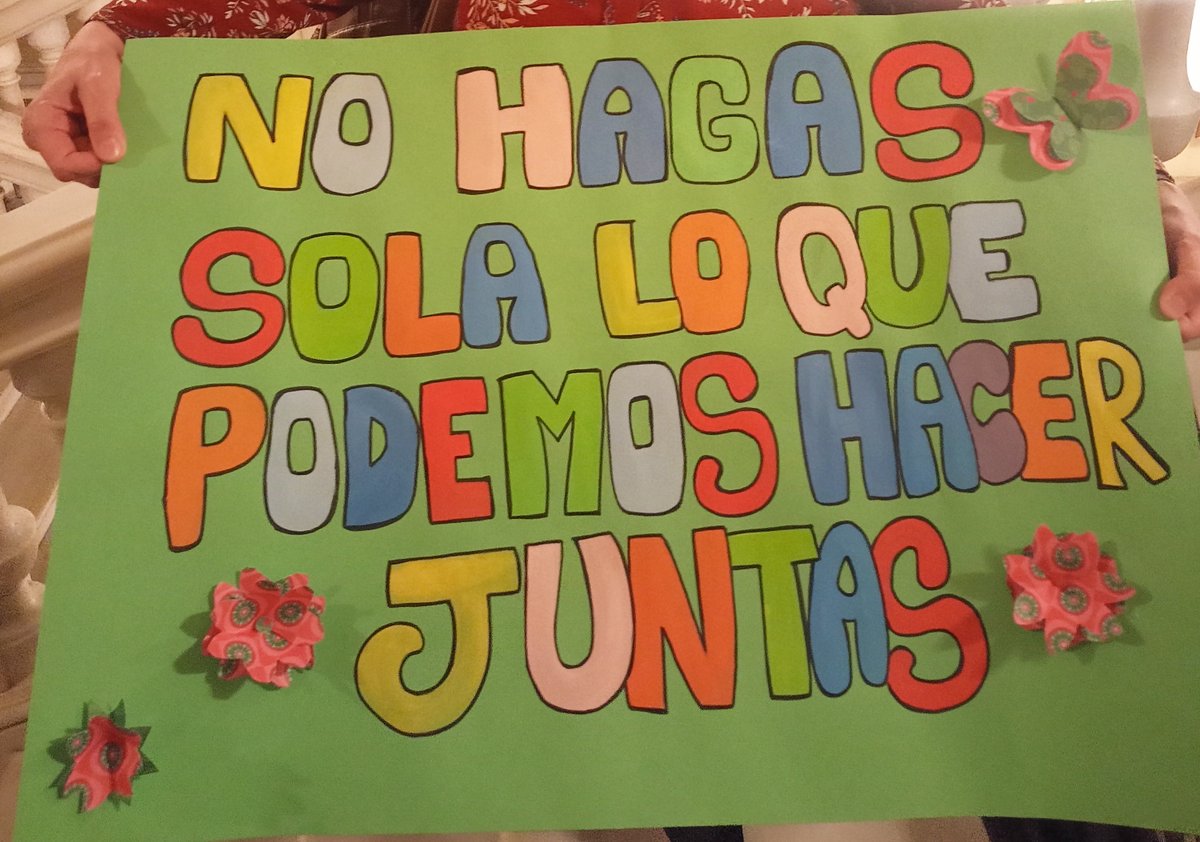 NO HAGAS
SOLA LO QUE
PODEMOS HACER
JUNTAS